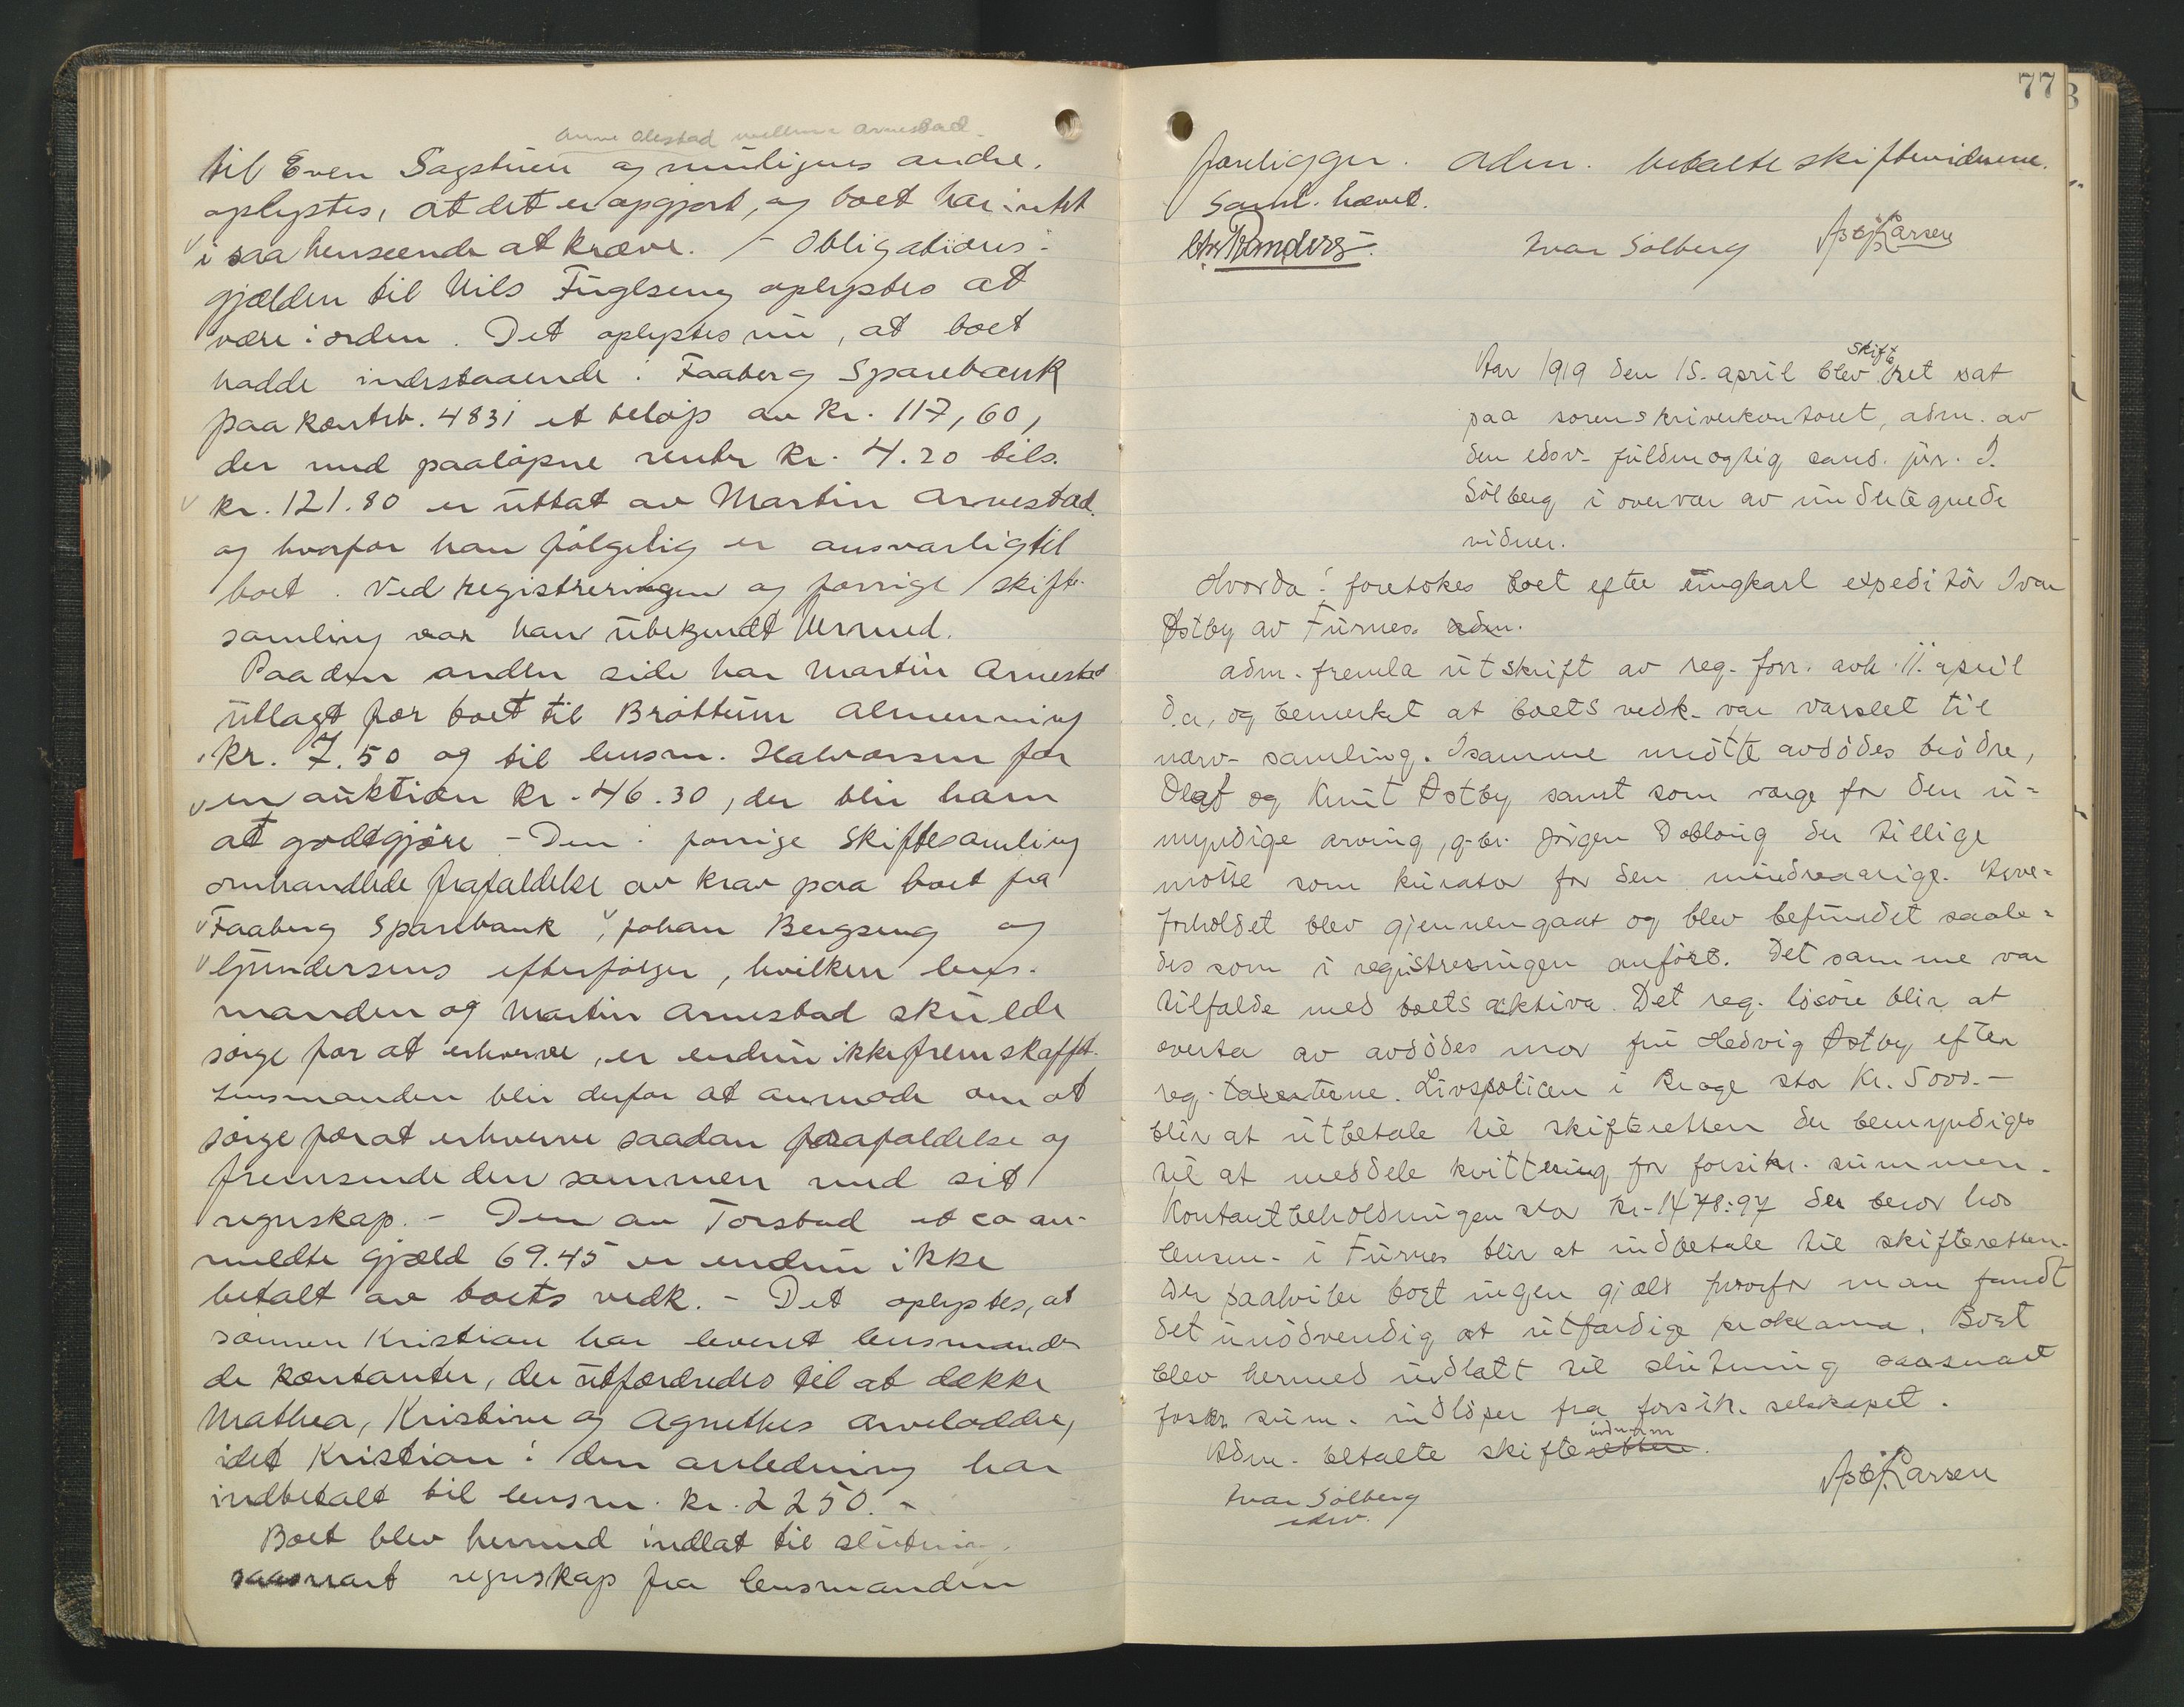 Anne Olestad mellem Arnestad.
til Even Sagstuen og muligens andre,
oplystes, at det er opgjort, og boet har intet
i saa henseende at kræve. – Obligations-
gjælden til Nils Fuglseng oplystes at
være i orden. Det oplystes nu, at boet
hadde indestaaende i Faaberg Sparebank
paa kontrb. 4831 et beløp av kr. 117,60,
der med paaløpne renter kr. 4.20 tils.
kr. 121.80 er uttat av Martin Arnestad
og hvorfor han følgelig er ansvarlig til
boet. Ved registreringen og forrige skifte-
samling var han ubekjendt hermed.
Paa den anden side har Martin Arnestad
utlagt for boet til Brøttum Almenning
kr. 7.50 og til lensm. Halvorsen for
en auktion kr. 46.30, der blir ham
at godtgjøre – Den i forrige skiftesamling
omhandlede frafaldelse av krav paa boet fra
Faaberg Sparebank, Johan Bergseng og
Gundersens efterfølger, hvilken lens-
manden og Martin Arnestad skulde
sørge for at erhverve, er endnu ikke fremskafft.
Lensmanden blir derfor at anmode om at
sørge for at erhverve saadan frafaldelse og
fremsende den sammen med sit
regnskap. – Den av Torstad et co an-
meldte gjæld 69.45 er endnu ikke
betalt av boets vedk. – Det oplystes, at
sønnen Kristian har levert lensmanden
de kontanter, der utfordredes til at dekke
Mathea, Kristine og Agnethes arvelodder,
idet Kristian i den anledning har
indbetalt til lensm. kr. 2250. –
Boet blev hermed indlat til slutning
saasnart regnskap fra lensmanden
77
foreligger. Adm. betalte skiftevidnene.
Saml. hævet.
Ivar Sølberg Larsen
Aar 1919 den 15. april blev skifteret sat
paa sorenskriverkontoret, adm. av
den edsv. fuldmægtig cand. jur. I.
Sølberg i overvær av undertegnede
vidner.
Hvorda: foretokes boet efter ungkarl expeditør Ivar
Østby av Furnes. adm.
adm. fremla utskrift av reg. forr. avh. 11. april
d.a., og bemerket at boets vedk. var varslet til
nærv. samling. I samme møtte avdødes brødre,
Olaf og Knut Østby samt som verge for den u-
myndige arving, g.br. Jørgen Dobloug der tillige
møtte som kurator for den mindreaarige. Arve-
forholdet blev gjennemgaat og blev befundet saale-
des som i registreringen anført. Det samme var
tilfælde med boets aktiva. Det reg. løsøre blir at
overta av avdødes mor fru Hedvig Østby efter
reg. taxterne. Livspolicen i Brage stor kr. 5000.–
blir at utbetale til skifteretten der bemyndiges
til at meddele kvittering for forsikr. summen.
Kontantbeholdningen stor kr. 1478:97 der beror hos
lensm. i Furnes blir at indbetale til skifteretten.
Der paahviler boet ingen gjæld hvorfor man fandt
det unødvendig at utfærdige proklama. Boet
blev hermed indlatt til slutning saasnart
forskr. sum. indløper fra forsik. selskapet.
Adm. betalte skifteretten.
Ivar Sølberg Larsen
edsv.